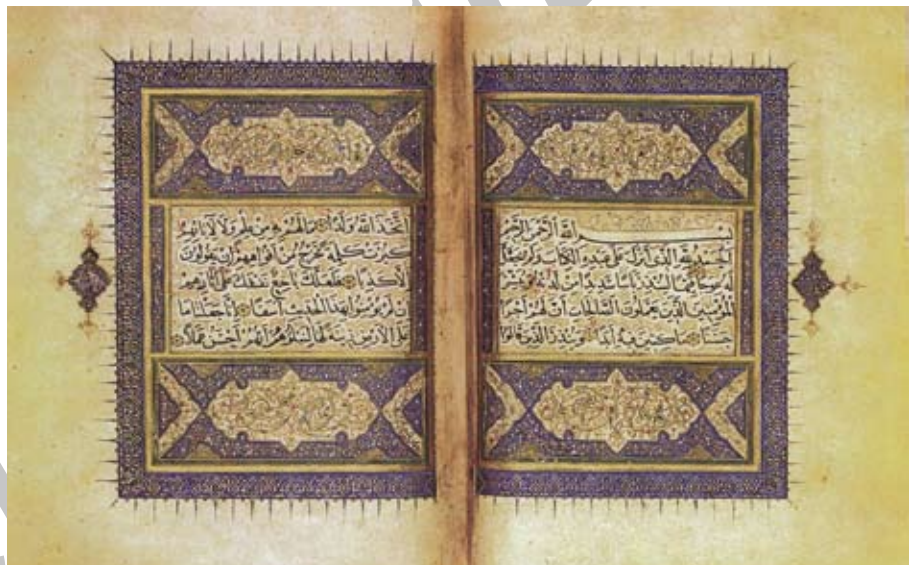 بسم الله الرحمن الرحيم
الحمد لله الذي أنزل على عبده الكتاب ولم يجعل
له عوجا قيما لينذر بأسا شديدا من لدنه ويبشر
المؤمنين الذين يعملون الصالحات أن لهم أجرا
حسنا ماكثين فيه أبدا وينذر الذين قالوا
اتخذ الله ولدا ما لهم به من علم ولا لآبائهم
كبرت كلمة تخرج من أفواههم إن يقولون
إلا كذبا فلعلك باخع نفسك على آثارهم
إن لم يؤمنوا بهذا الحديث أسفا إنا جعلنا ما
على الأرض زينة لها لنبلوهم أيهم أحسن عملا